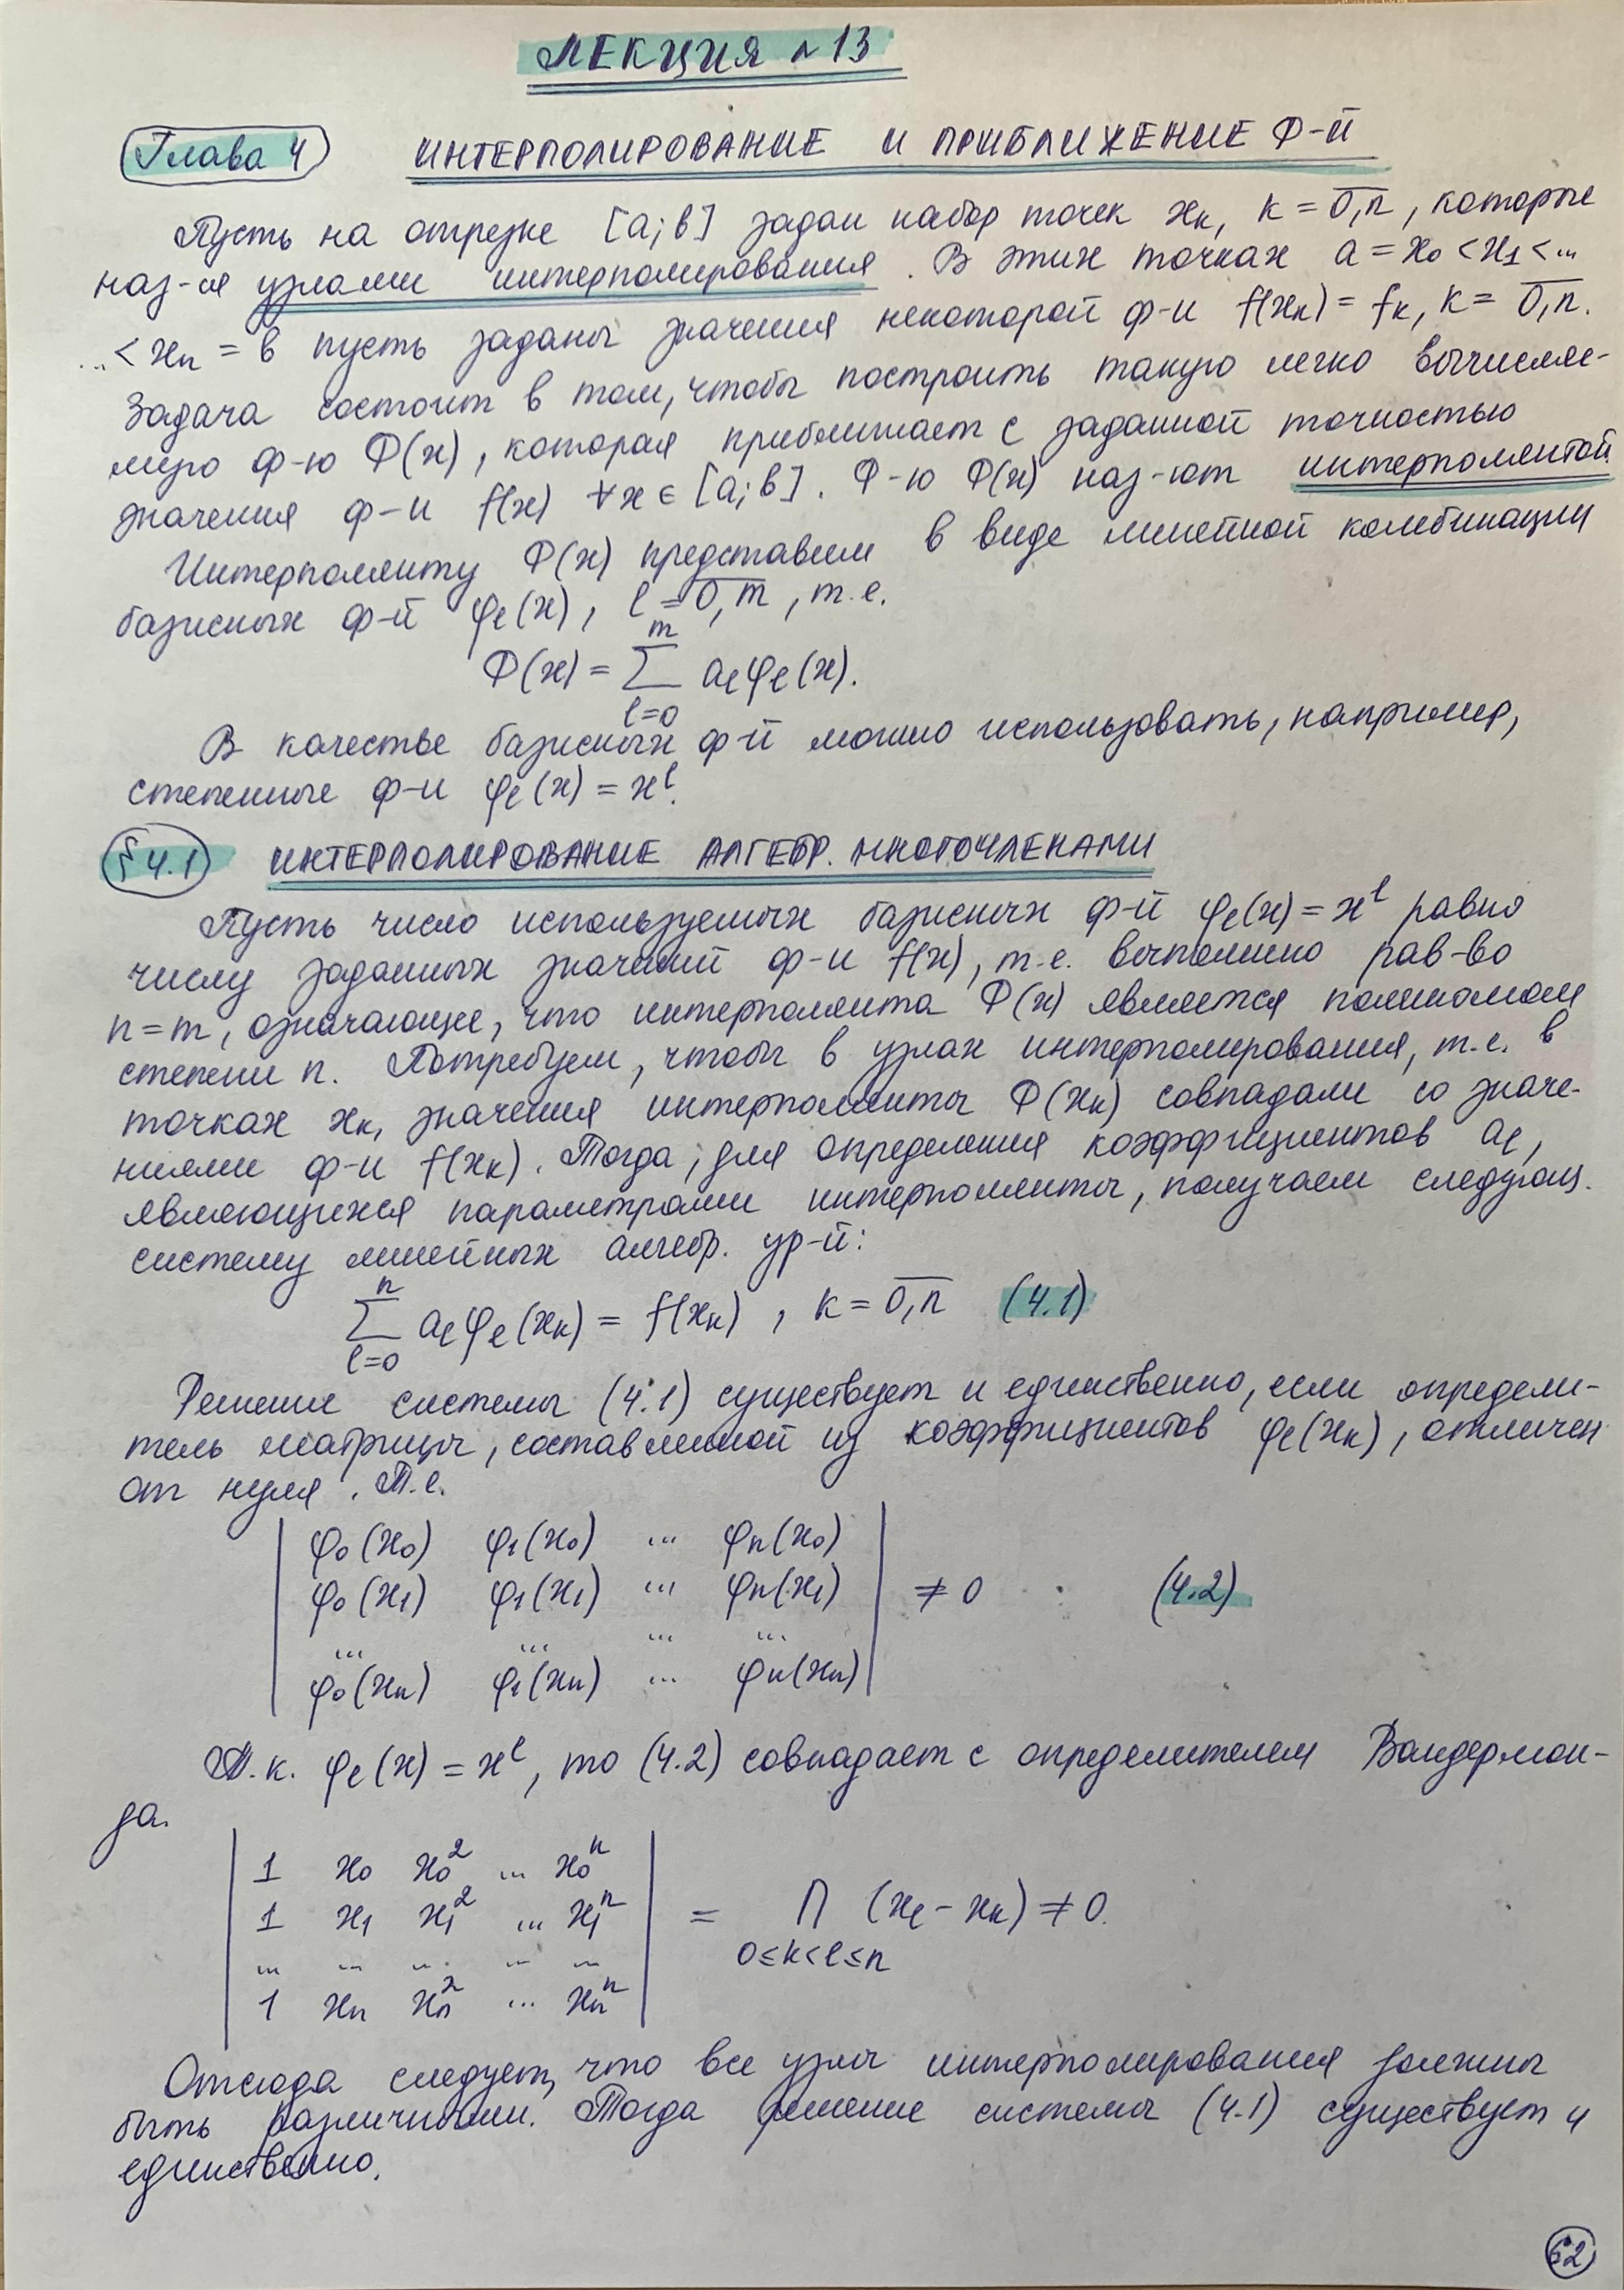 ЛЕКЦИЯ №13
Глава 4 ИНТЕРПОЛИРОВАНИЕ И ПРИБЛИЖЕНИЕ Ф-Й
Пусть на отрезке [a; b] задан набор точек xₖ, k = 0,n̅, которые
наз-ся узлами интерполирования. В этих точках a = x₀ < x₁ < ...
... < xₙ = b пусть заданы значения некоторой ф-и f(xₖ) = fₖ, k = 0,n̅.
Задача состоит в том, чтобы построить такую легко вычисляе-
мую ф-ю Φ(x), которая приближает с заданной точностью
значения ф-и f(x) ∀x ∈ [a; b]. Ф-ю Φ(x) наз-ют интерполянтой.
Интерполянту Φ(x) представим в виде линейной комбинации
базисных ф-й φₗ(x), l = 0,m̅, т.е.
m
Φ(x) = ∑ aₗφₗ(x).
l=0
В качестве базисных ф-й можно использовать, например,
степенные ф-и φₗ(x) = xˡ.
§ 4.1 ИНТЕРПОЛИРОВАНИЕ АЛГЕБР. МНОГОЧЛЕНАМИ
Пусть число используемых базисных ф-й φₗ(x) = xˡ равно
числу заданных значений ф-и f(x), т.е. выполнено рав-во
n = m, означающее, что интерполянта Φ(x) является полиномом
степени n. Потребуем, чтобы в узлах интерполирования, т.е. в
точках xₖ, значения интерполянты Φ(xₖ) совпадали со значе-
ниями ф-и f(xₖ). Тогда, для определения коэффициентов aₗ,
являющихся параметрами интерполянты, получаем следующ.
систему линейных алгебр. ур-й:
n
∑ aₗφₗ(xₖ) = f(xₖ), k = 0,n̅ (4.1)
l=0
Решение системы (4.1) существует и единственно, если определи-
тель матрицы, составленной из коэффициентов φₗ(xₖ), отличен
от нуля. Т.е.
| φ₀(x₀) φ₁(x₀) ... φₙ(x₀) |
| φ₀(x₁) φ₁(x₁) ... φₙ(x₁) | ≠ 0 (4.2)
| ... ... ... ... |
| φ₀(xₙ) φ₁(xₙ) ... φₙ(xₙ) |
Т.к. φₗ(x) = xˡ, то (4.2) совпадает с определителем Вандермон-
да.
| 1 x₀ x₀² ... x₀ⁿ |
| 1 x₁ x₁² ... x₁ⁿ | = ∏ (xₗ - xₖ) ≠ 0.
| ... ... ... ... ... | 0≤k<l≤n
| 1 xₙ xₙ² ... xₙⁿ |
Отсюда следует, что все узлы интерполирования должны
быть различными. Тогда решение системы (4.1) существует и
единственно.
62